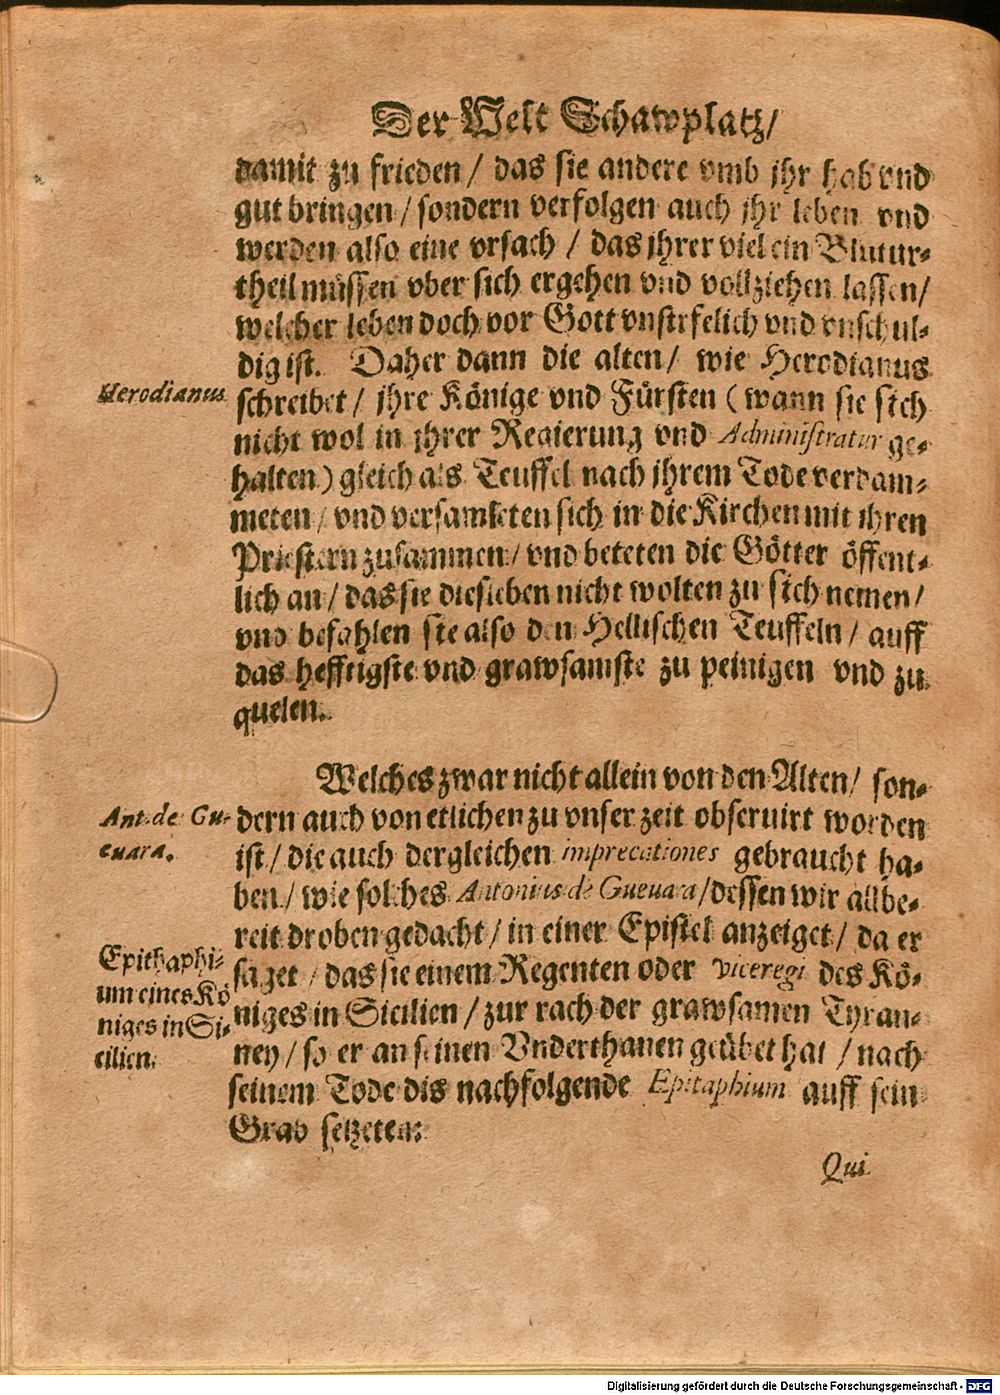 Der Welt Schawplatz/
damit zu frieden/ das sie andere vmb jhr hab vnd
gut bringen/ sondern verfolgen auch jhr leben vnd
werden also eine vrsach/ das jhrer viel ein Blutur-
theil müssen vber sich ergehen vnd vollziehen lassen/
welcher leben doch vor Gott vnstrfelich vnd vnschul-
dig ist. Daher dann die alten/ wie Herodianus
Herodianus
schreibet/ jhre Könige vnd Fürsten (wann sie sich
nicht wol in jhrer Regierung vnd Administratur ge-
halten) gleich als Teuffel nach jhrem Tode verdam-
meten/ vnd versamleten sich in die Kirchen mit jhren
Priestern zusammen/ vnd beteten die Götter öffent-
lich an/ das sie dieselben nicht wolten zu sich nemen/
vnd befahlen sie also den Hellischen Teuffeln/ auff
das hefftigste vnd grawsamste zu peinigen vnd zu
quelen.
Welches zwar nicht allein von den Alten/ son-
Ant. de Gu-
euara.
dern auch von etlichen zu vnser zeit obseruirt worden
ist/ die auch dergleichen imprecationes gebraucht ha-
ben/ wie solches Antonius de Gueuara/ dessen wir allbe-
reit droben gedacht/ in einer Epistel anzeiget/ da er
Epithaphi-
um eines Kö
niges in Si-
cilien.
saget/ das sie einem Regenten oder viceregi des Kö-
niges in Sicilien/ zur rach der grawsamen Tyran-
ney/ so er an seinen Vnderthanen geübet hat/ nach
seinem Tode dis nachfolgende Epitaphium auff sein
Grab setzeten:
Qui
Digitalisierung gefördert durch die Deutsche Forschungsgemeinschaft - DFG